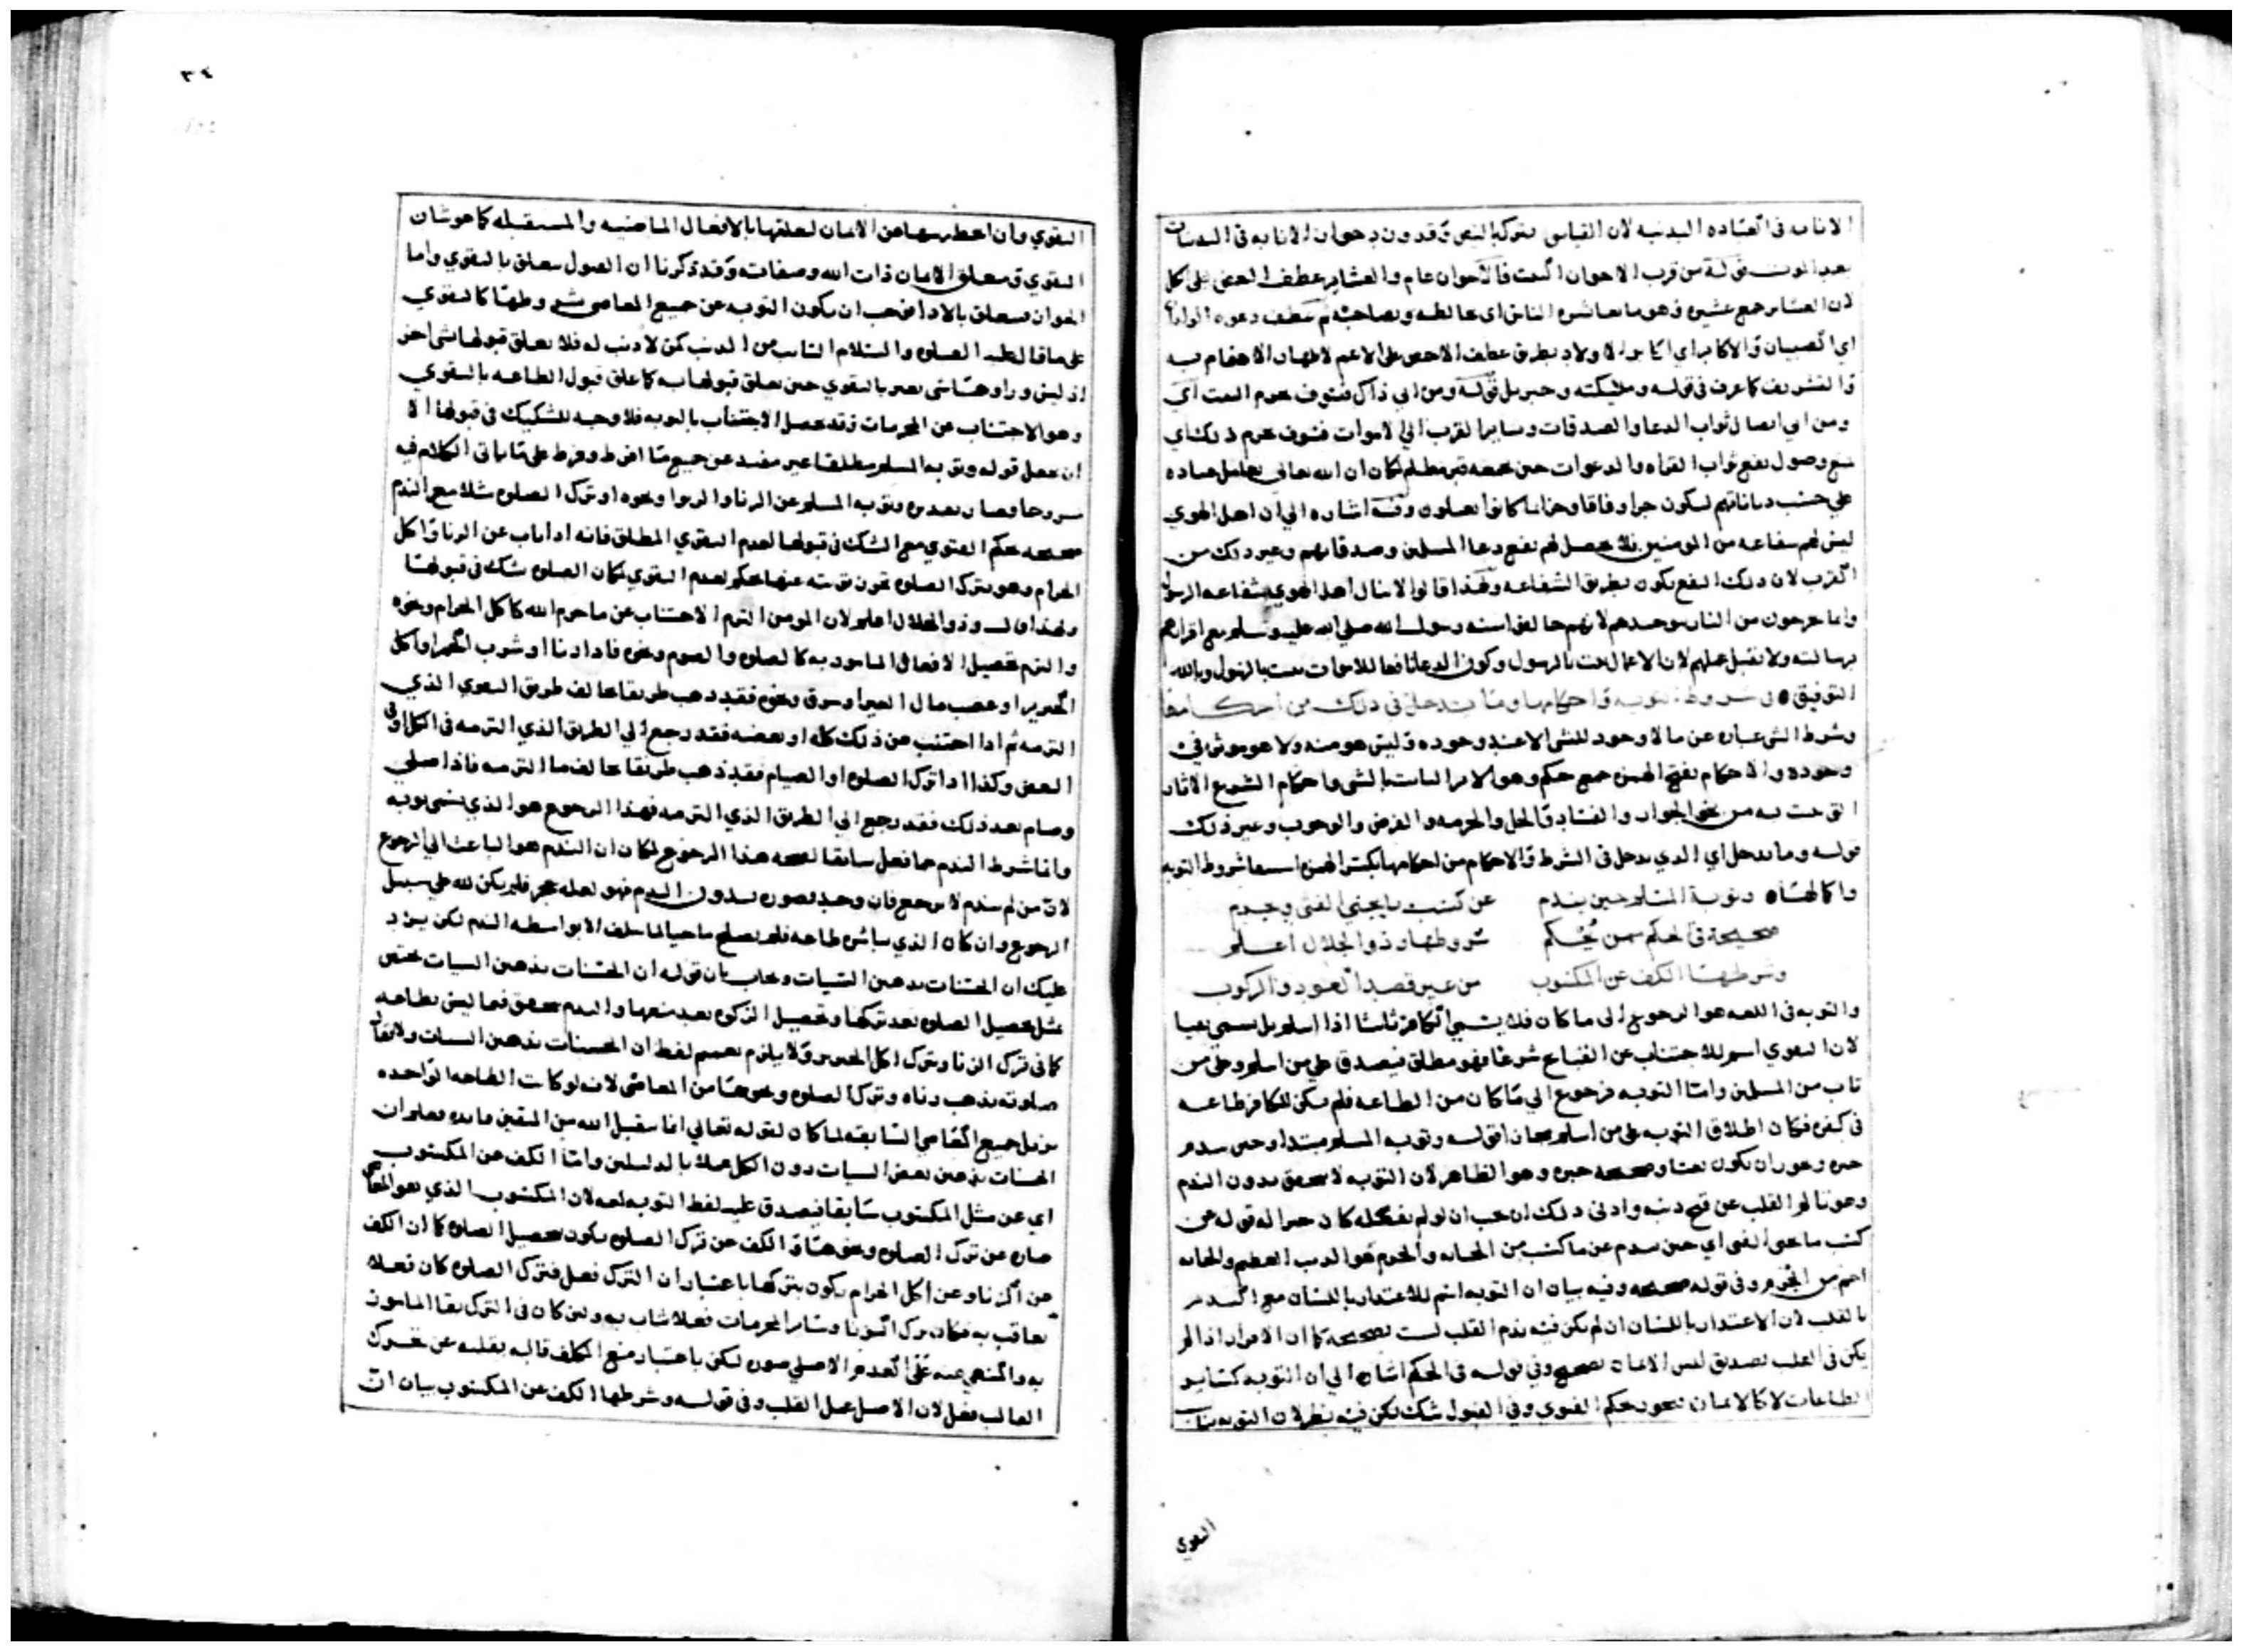 الانابه في العباده البدنيه لان القياس يترك بالنص وقد ورد بجواز الانابه في البدنيات
بعد الموت قوله من قرب الاخوان الميت فالاخوان عام والعشاير عطف البعض على الكل
لان العشاير جمع عشيره وهو ما يعاشره الناس اي يخالطه ويصاحبه ثم عطف دعوه الولدان
اي الصبيان والاكابر اي اكابر الاولاد بطريق عطف الاخص على الاعم لاظهار الاهتمام به
والتشريف كما عرف في قوله وملئكته وجبريل قوله ومن ابي ذاك فسوف يحرم البعث اي
ومن ابي ايصال ثواب الدعا والصدقات وساير القرب الي الاموات فسوف يحرم ذلك اي
يمنع وصول نفع ثواب القراه والدعوات حين يحبه قبر مظلم لمكان ان الله تعالى يعامل عباده
على حسب دياناتهم ليكون جزا وفاقا وجزا بما كانوا يعملون وفيه اشاره الي ان اهل الهوي
ليس لهم شفاعه من المومنين فلا يحصل لهم نفع دعا المسلمين وصدقاتهم وغير ذلك من
القرب لان ذلك النفع يكون بطريق الشفاعه ولهذا قالوا لا ينال اهل الهوي شفاعه الرسول
وانما يخرجون من النار بتوحيدهم لانهم خالفوا سنه رسول الله صلي الله عليه وسلم مع اقرارهم
برسالته ولا تقبل عملهم لان الاعمال بالرسول وكون الدعا نافعا للاموات ثبت بالرسول وبالله
التوفيق في شروط التوبه واحكامها وما يتدخل في ذلك من احكامها
وشرط الشي عباره عن ما لا وجود للشي الا عند وجوده وليس هو منه ولا هو موثر في
وجوده والاحكام بفتح الهمزه جمع حكم وهو الامر الثابت بالشي واحكام الشرع الاثار
التي ثبت به من نحو الجواز والفساد والحل والحرمه والفرض والوجوب وغير ذلك
قوله وما يدخل اي الذي يدخل في الشرط والاحكام من احكامها بكسر الهمزه شروط التوبه
واكمالها وتوبة المسلم حين يندم عن كسب ما يجني الفتي ويجرم
صحيحة في الحكم ممن يحكم شروطها وذو الجلال اعلم
وشرطها الكف عن المكتوب من غير قصد العود والركوب
والتوبه في اللغه هو الرجوع الى ما كان فلا يسمي الكافر تائبا اذا اسلم بل يسمي تقيا
لان التقوي اسم للاجتناب عن القبايح شرعا فهو مطلق فيصدق علي من اسلم وعلى من
تاب من المسلمين واما التوبه فرجوع الي ما كان من الطاعه فلم يكن للكافر طاعه
في كفره فكان اطلاق التوبه على من اسلم مجازا قوله وتوبه المسلم مبتدا وحين يندم
خبره ويجوز ان يكون نعتا وصحيحه خبره وهو الظاهر لان التوبه لا يتحقق بدون الندم
وهو تالم القلب عن قبح ذنبه وادنى ذلك ان يحب ان لو لم يفعله كان خيرا له قوله عن
كسب ما يجني الفتى اي حين يندم عن ما كسب من الجنايه والجرم هو الذنب العظيم والجنايه
اعم من الجرم وفي قوله صحيحه وفيه بيان ان التوبه اسم للاعتذار باللسان مع الندم
بالقلب لان الاعتذار باللسان ان لم يكن فيه ندم القلب ليست بصحيحة كما ان الاقرار اذا لم
يكن في القلب تصديق ليس الايمان بصحيح وفي قوله في الحكم اشاره الي ان التوبه كساير
الطاعات لا كالايمان بجواز حكم الفتوي وفي القبول شك لكن فيه نظر لان التوبه
التقوي
٣٤
التقوي وان من الايمان لتعلقها بالافعال الماضيه والمستقبله كما هو شان
التقوي ومتعلق الايمان ذات الله وصفاته وقد ذكرنا ان القبول يتعلق بالتقوي واما
الجواز فيتعلق بالاداء فيجب ان يكون التوبه عن جميع المعاصي شروطها كالتقوي
على ما قال عليه الصلوه والسلام التايب من الذنب كمن لا ذنب له فلا يتعلق قبولها بشي اخر
اذ ليس وراها شي يعبر بالتقوي حين يعلق قبولها به كما علق قبول الطاعه بالتقوي
وهو الاجتناب عن المحرمات وقد حصل الاجتناب بالتوبه فلا وجه للتشكيك في قبولها الا
ان يجعل قوله وتوبه المسلم مطلقا غير مقيد عن جميع ما افرط وفرط على ما ياتي الكلام فيه
مشروحا فصار تقديره وتوبه المسلم عن الزنا والربوا ونحوه او ترك الصلوه مثلا مع الندم
صحيحه بحكم الفتوي مع الشك في قبولها لعدم التقوي المطلق فانه اذا تاب عن الزنا واكل
الحرام وهو يترك الصلوه يجوز توبته عنها بحكم لعدم التقوي لمكان الصلوه شك في قبولها
ولهذا قال وذو الجلال اعلم لان المومن التزم الاجتناب عن ما حرم الله كاكل الحرام ونحوه
والتزم تحصيل الافعال المامور به كالصلوه والصوم ونحوه فاذا زنا او شرب الخمر او اكل
الخنزير او غصب مال الغير او سرق ونحوه فقد ذهب طريقا مخالف طريق التقوي الذي
التزمه ثم اذا اجتنب عن ذلك كله او بعضه فقد رجع الي الطريق الذي التزمه في الكل او في
البعض وكذا اذا ترك الصلوه او الصيام فقد ذهب طريقا مخالف ما التزمه فاذا صلي
وصام بعد ذلك فقد رجع الي الطريق الذي التزمه فهذا الرجوع هو الذي يسمي توبه
وانما شرط الندم عما فعل سابقا لصحه هذا الرجوع لمكان ان الندم هو الباعث الي الرجوع
لان من لم يندم لا يرجع فان وجد بصوره بدون الندم فهو لعله عجز فلم يكن لله على سبيل
الرجوع وان كان الذي يباشره طاعه فلم يصلح ماحيا لما سلف الا بواسطه الندم لكن يرد
عليك ان الحسنات يذهبن السيات ويجاب بان قوله ان الحسنات يذهبن السيات مختص
بمثل تحصيل الصلوه بعد تركها وتحصيل الزكوه بعد منعها والندم يتحقق فيما ليس بطاعه
كما في ترك الزنا وترك اكل الخنزير ولا يلزم تعميم لفظ ان الحسنات يذهبن السيات ولا يقال
صلوته يذهب زناه وترك الصلوه ونحوها من المعاصي لانه لو كانت الطاعه الواحده
يزيل جميع المعاصي السابقه لما كان لقوله تعالي انما يتقبل الله من المتقين فايده فعلم ان
الحسنات يذهبن بعض السيات دون الكل عملا بالدليلين واما الكف عن المكتوب
اي عن مثل المكتوب سابقا فيصدق عليه لفظ التوبه لغه لان المكتوب الذي هو المعاصي
عباره عن ترك الصلوه ونحوها والكف عن ترك الصلوه يكون بتحصيل الصلوه كما ان الكف
عن الزنا وعن اكل الحرام يكون بتركها باعتبار ان الترك فعل فترك الصلوه كان فعلا
يعاقب به فكان ترك الزنا وساير المحرمات فعلا يثاب به ولئن كان في الترك بقا المامور
به والمنهي عنه على العدم الاصلي صوره لكن باعتبار منع المكلف قالبه بقلبه عن تحرك
القالب فعل لان الاصل عمل القلب وفي قوله وشرطها الكف عن المكتوب بيان ان